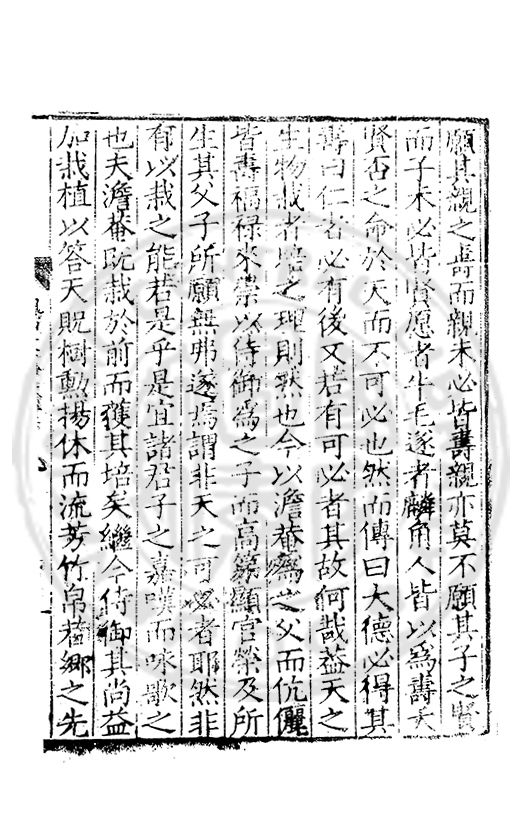 願其親之壽而親未必皆壽親亦莫不願其子之賢
而子未必皆賢愿者牛毛遂者麟角人皆以爲壽夭
賢否之命於天而不可必也然而傳曰大德必得其
壽曰仁者必有後又若有可必者其故何哉葢天之
生物栽者培之理則然也今以澹菴爲之父而伉儷
皆壽福禄來崇以侍御爲之子而高第顯官榮及所
生其父子所願無弗遂焉謂非天之可必者耶然非
有以栽之能若是乎是宜諸君子之嘉嘆而咏歌之
也夫澹菴既栽於前而獲其培矣繼今侍御其尚益
加栽植以答天貺樹勲揚休而流芳竹帛若鄉之先